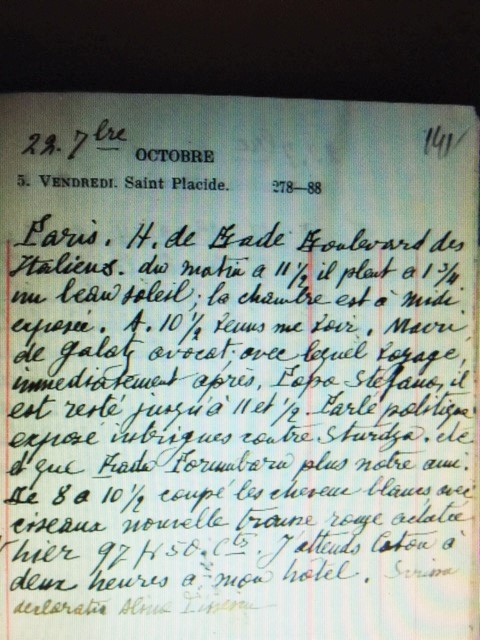 22. 7bre
141
OCTOBRE
5. VENDREDI. Saint Placide. 278—88
Paris. H. de Bade Boulevard des
Italiens. du matin a 11 1/2 il pleut a 1 3/4
un beau soleil; la chambre est à midi
exposée. A. 10 1/2 venus me voir. Mavri
de Galatz avocat avec lequel voyagé,
immediatement après, Papa Stefano, il
est resté jusqu'à 11 et 1/2 Parlé politique
exposé intrigues contre Sturdza. etc
et que Porumbaru plus notre ami.
De 8 a 10 1/2 coupé les cheveux blancs avec
ciseaux nouvelle trousse rouge achetée
hier 97 f 50. cts. J'attends Caton à
deux heures a mon hotel. Scrisu
declaratia